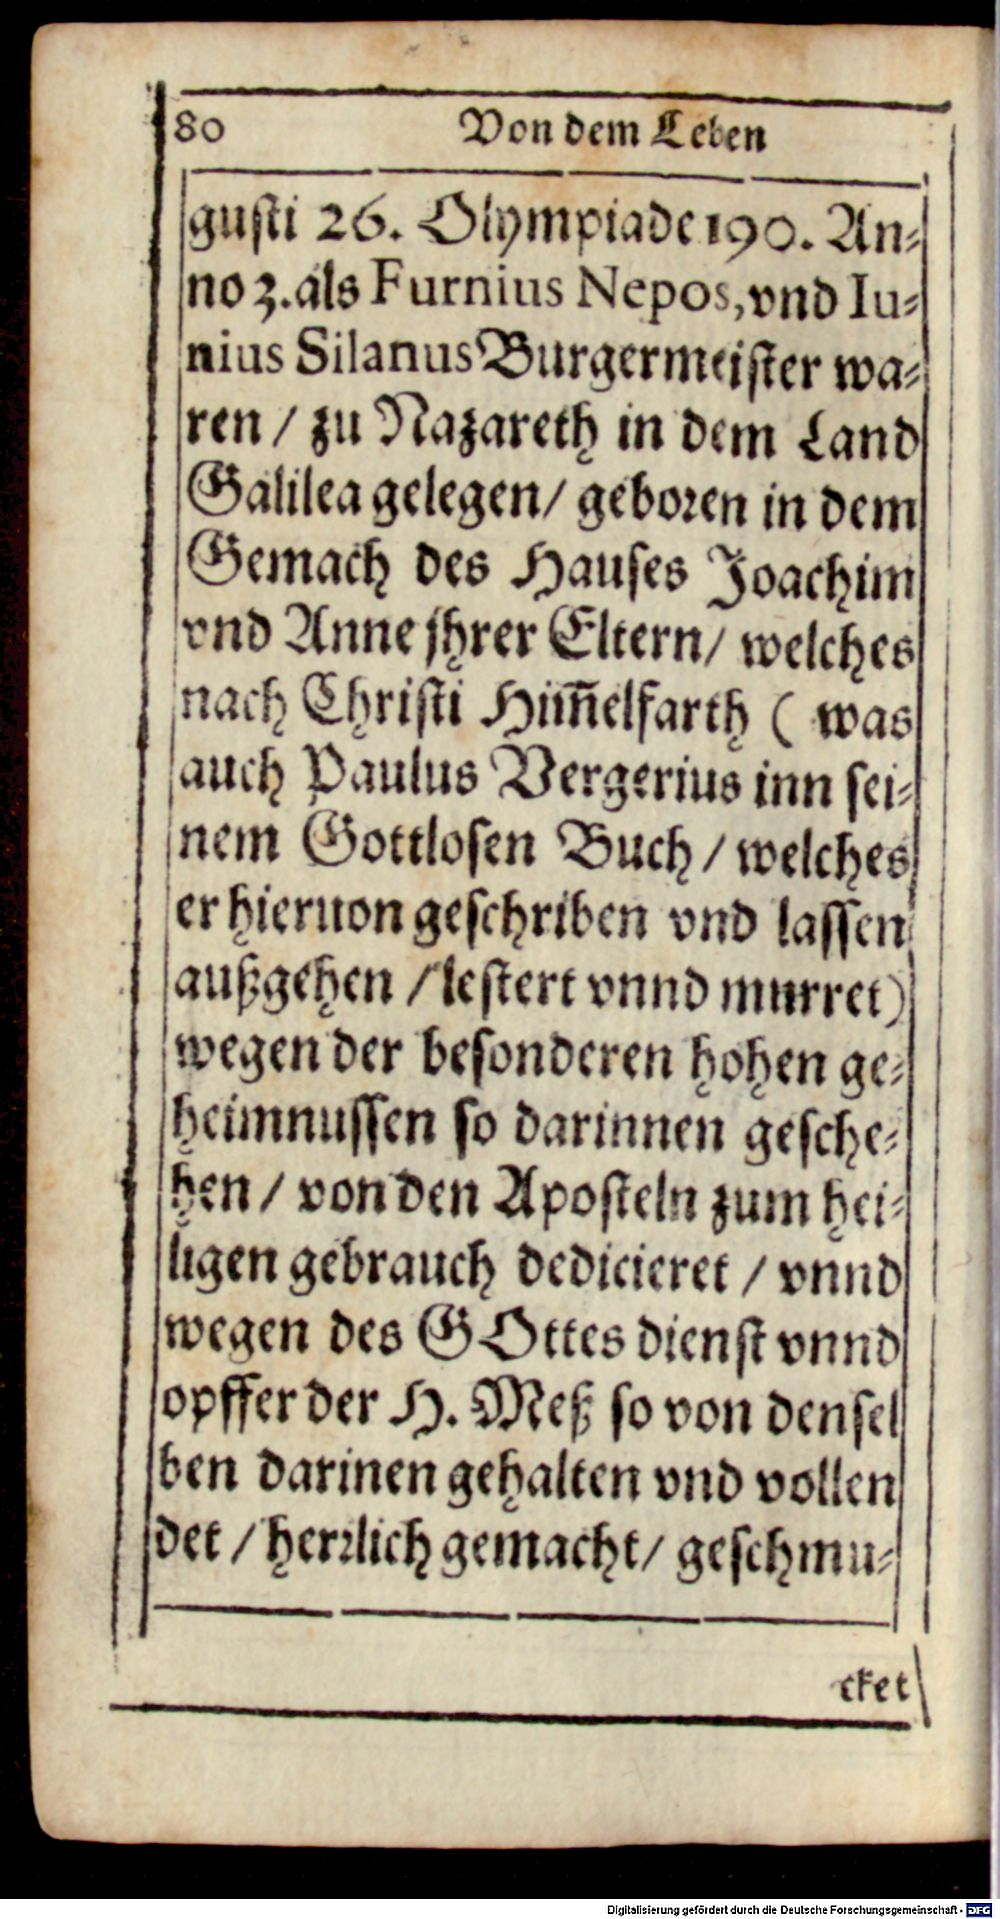 80 Von dem Leben
guſti 26. Olympiade 190. An⸗
no 3. als Furnius Nepos, vnd Iu⸗
nius Silanus Burgermeiſter wa⸗
ren / zu Nazareth in dem Land
Galilea gelegen/ geboren in dem
Gemach des Hauſes Joachim
vnd Anne jhrer Eltern/ welches
nach Chriſti Him̃elfarth ( was
auch Paulus Vergerius inn ſei⸗
nem Gottloſen Buch / welches
er hieruon geſchriben vnd laſſen
außgehen / leſtert vnnd murret)
wegen der beſonderen hohen ge⸗
heimnuſſen ſo darinnen geſche⸗
hen / von den Apoſteln zum hei⸗
ligen gebrauch dedicieret / vnnd
wegen des GOttes dienſt vnnd
opffer der H. Meß ſo von denſel
ben darinen gehalten vnd vollen
det / herꝛlich gemacht/ geſchmu⸗
cket
Digitalisierung gefördert durch die Deutsche Forschungsgemeinschaft - DFG